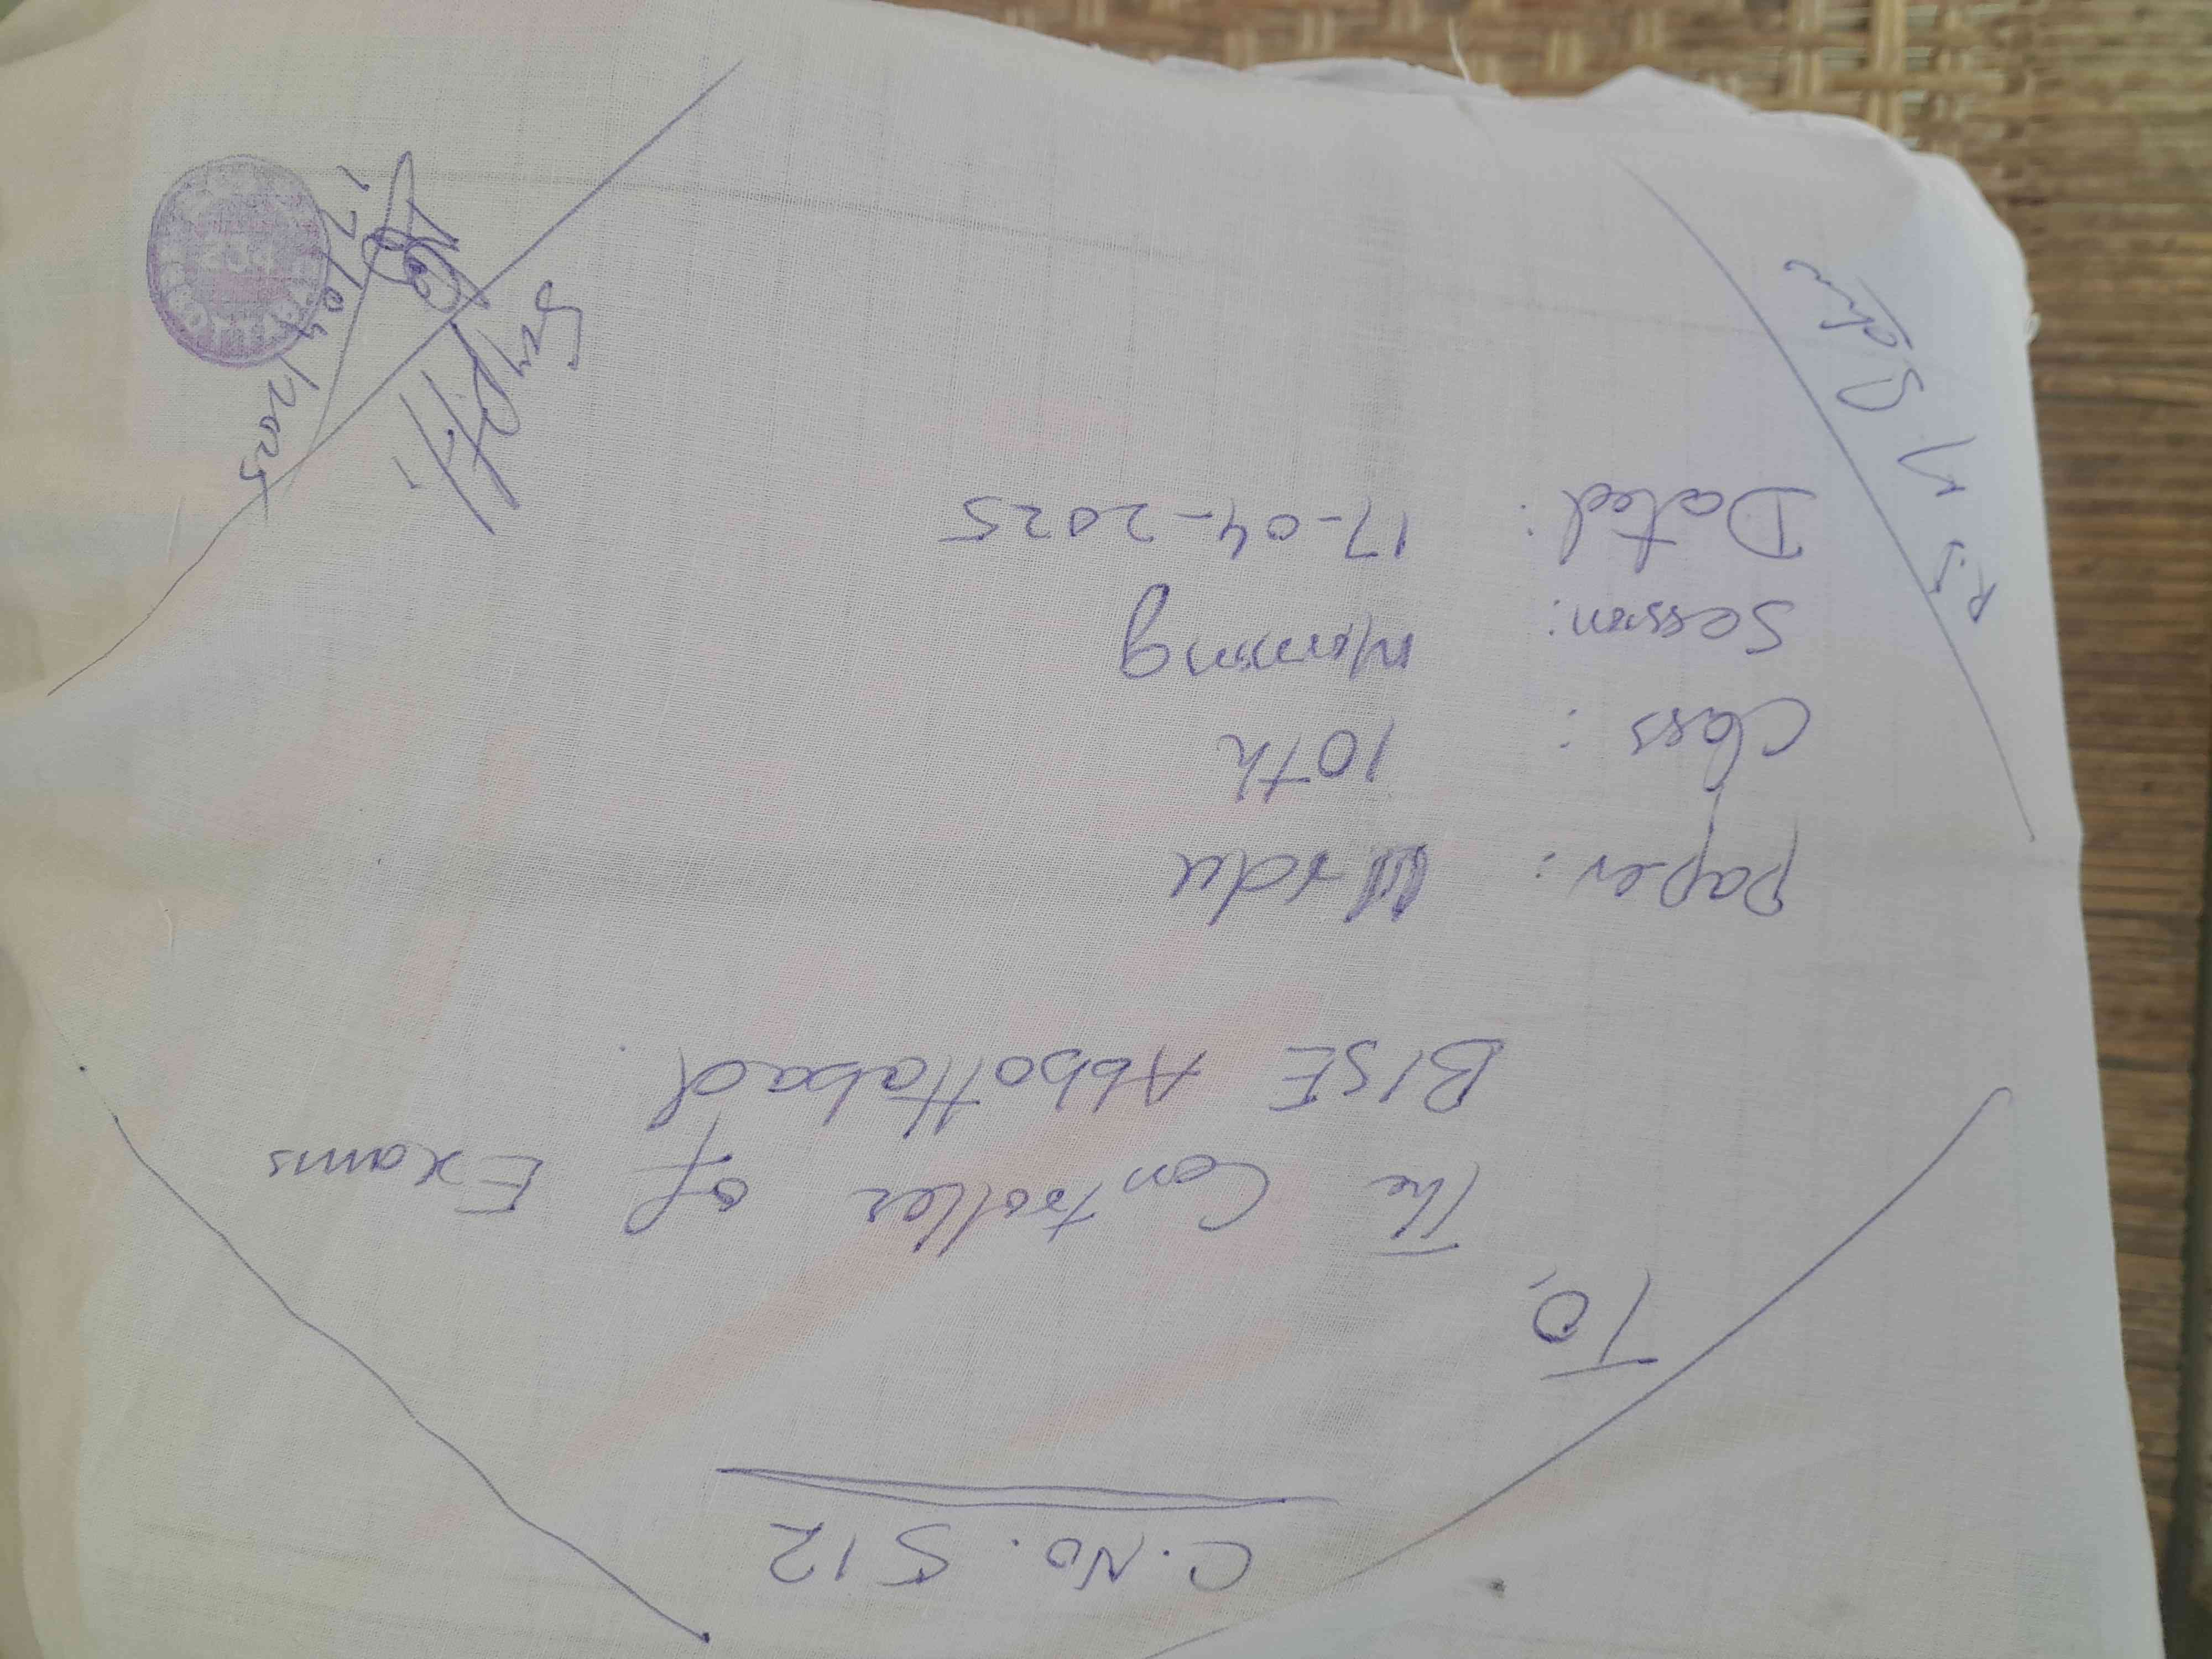 C.No. 512
To,
The Controller of Exams
BISE Abbottabad.
Paper: Urdu
Class: 10th
Session: Morning
Dated: 17-04-2025
Supdtt:
17/04/2025
234